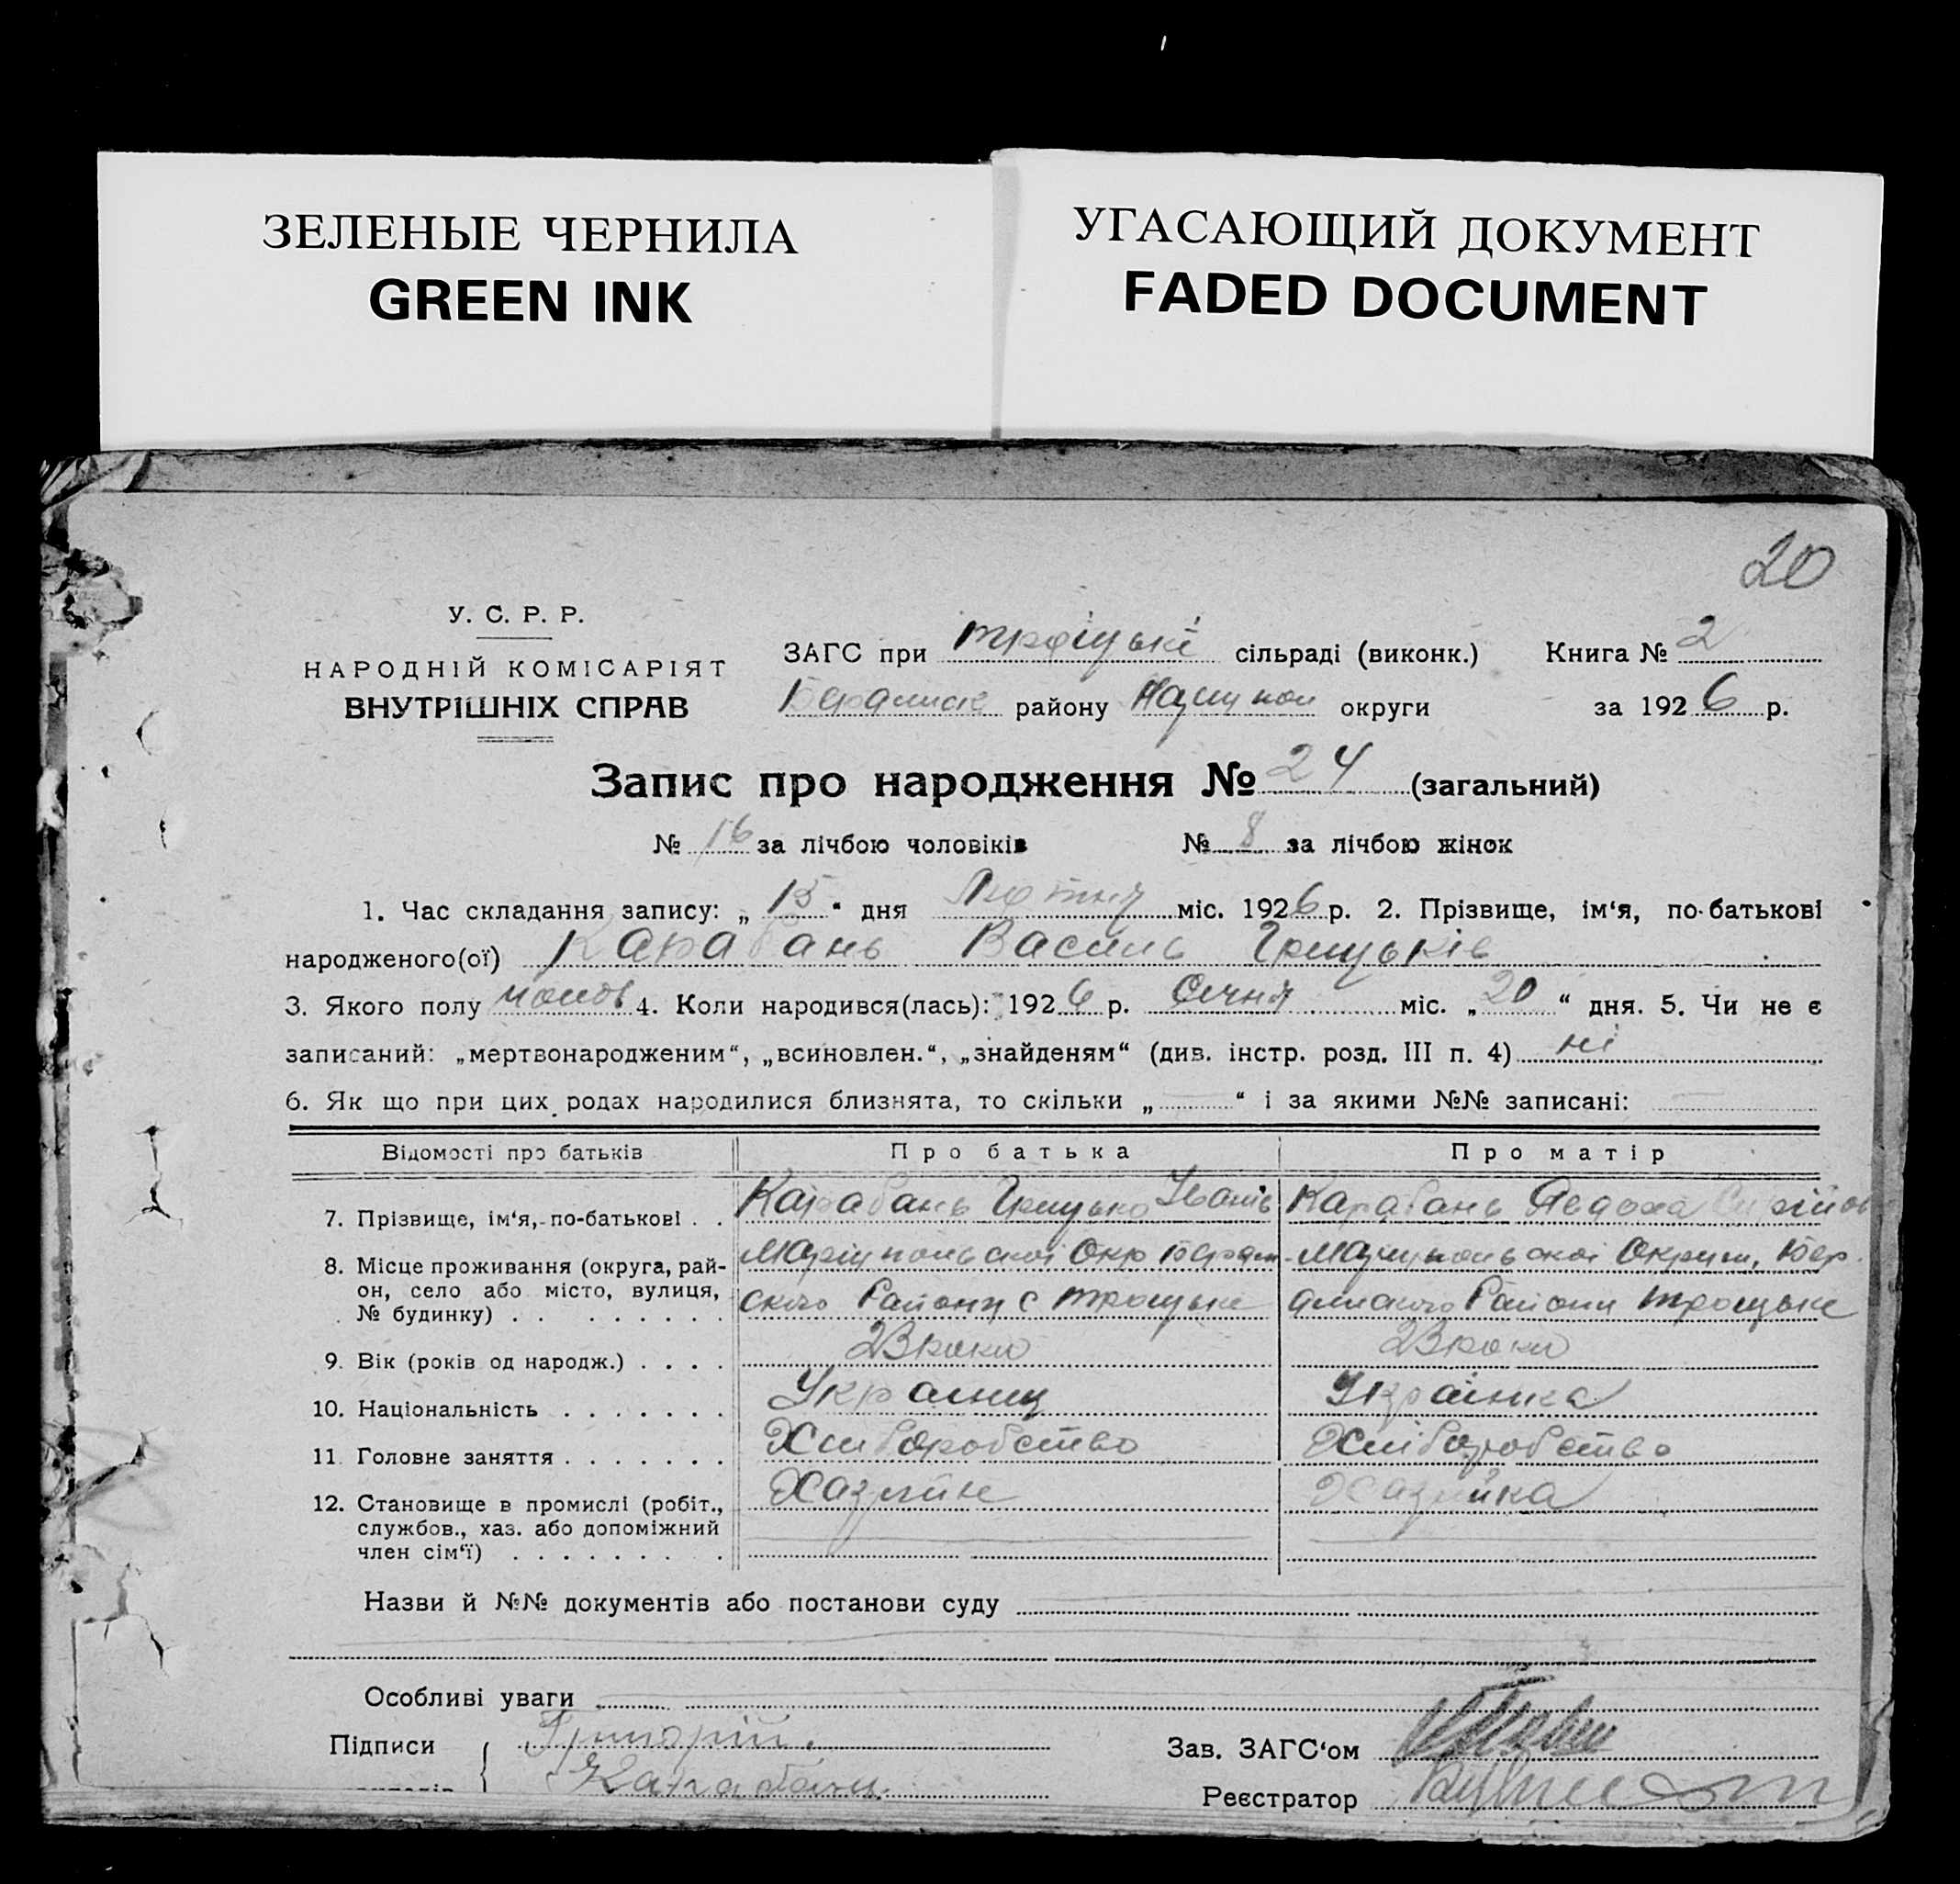 ЗЕЛЕНЫЕ ЧЕРНИЛА
GREEN INK
УГАСАЮЩИЙ ДОКУМЕНТ
FADED DOCUMENT
20
У. С. Р. Р.
НАРОДНІЙ КОМІСАРІЯТ
ВНУТРІШНІХ СПРАВ
ЗАГС при троіцькі сільраді (виконк.) Книга № 2
району округи за 1926 р.
Запис про народження № 24 (загальний)
№ 16 за лічбою чоловіків № 8 за лічбою жінок
1. Час складання запису: „ 15 “ дня Лютня міс. 1926 р. 2. Прізвище, ім‘я, по-батькові
народженого(ої) Карабань Василь Грицьків
3. Якого полу чолов 4. Коли народився(лась): 1926 р. Січня міс. „ 20 “ дня. 5. Чи не є
записаний: „мертвонародженим“, „всиновлен.“, „знайденям“ (див. інстр. розд. III п. 4) ні
6. Як що при цих родах народилися близнята, то скільки „ “ і за якими №№ записані:
Відомості про батьків Про батька Про матір
7. Прізвище, ім‘я, по-батькові . . Карабань Грицько Іванів Карабань Явдоха
8. Місце проживання (округа, рай- Маріупольскоі Окр Бердян- Маріупольскоі Округи, Бер
он, село або місто, вулиця, ского Району с Троцьке дянского Району Троцьке
№ будинку) . . . . . . . .
9. Вік (років од народж.) . . . . 23 роки 23 роки
10. Національність . . . . . . . Украинц Украінка
11. Головне заняття . . . . . . . Хлиборобство Хліборобство
12. Становище в промислі (робіт., Хазяїне Хазяйка
службов., хаз. або допоміжний
член сім‘ї) . . . . . . . . .
Назви й №№ документів або постанови суду
Особливі уваги
Підписи { Григорій. Зав. ЗАГС‘ом
Карабань. Реєстратор